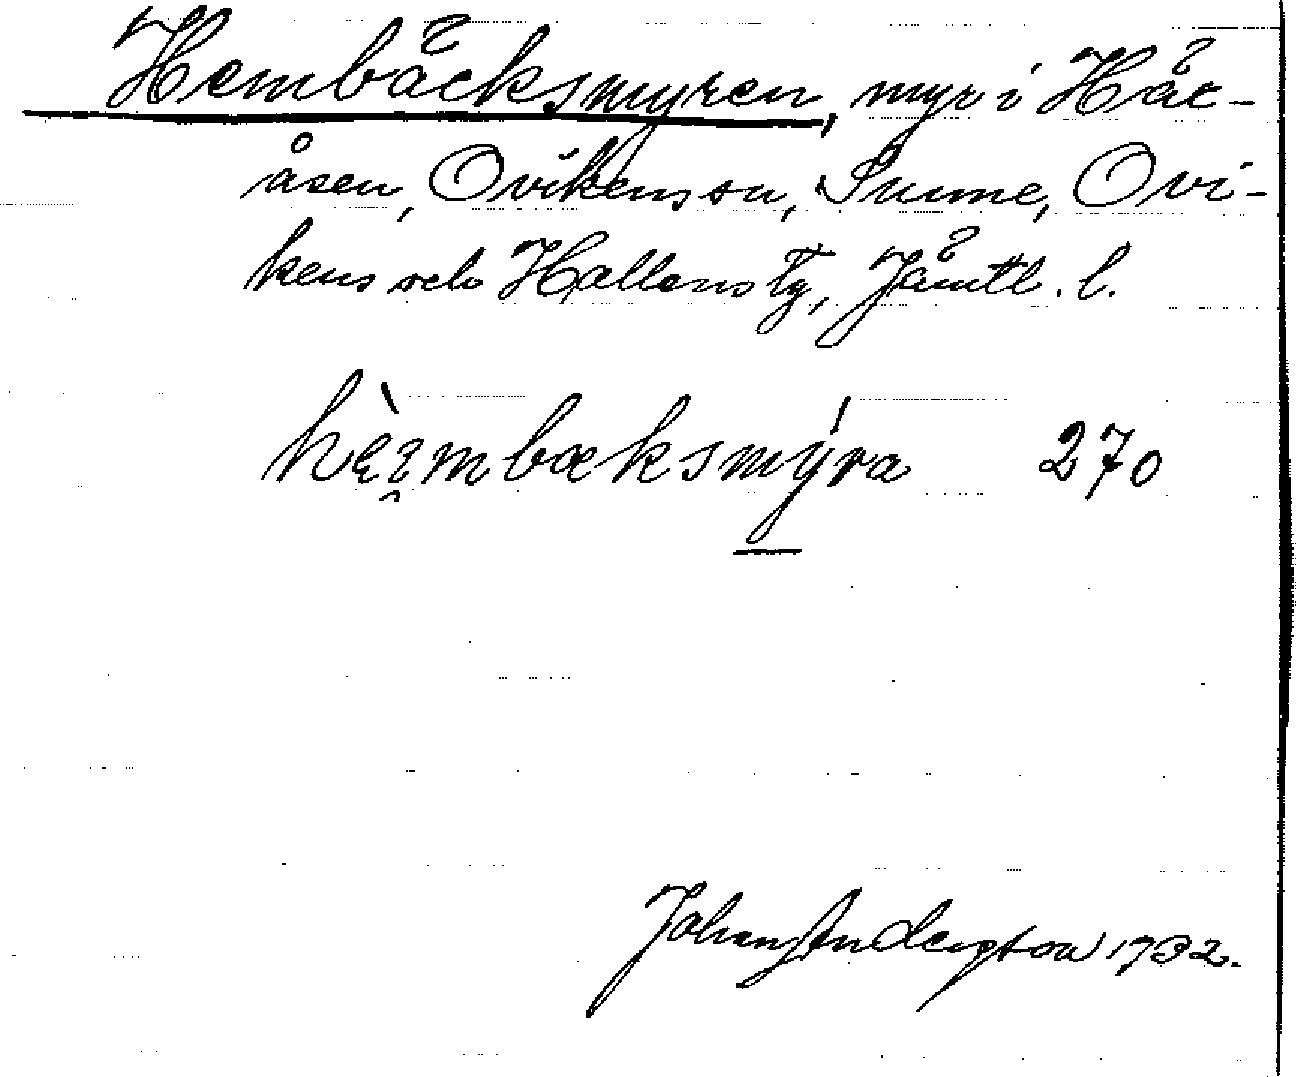 Hembäcksmyren, myr i Häl-
åsen, Ovikens sn, Sunne, Ovi-
kens och Hallens tg, Jämtl. l.
hèꝛmbæksmýra 270
Johan Anderson 1932.